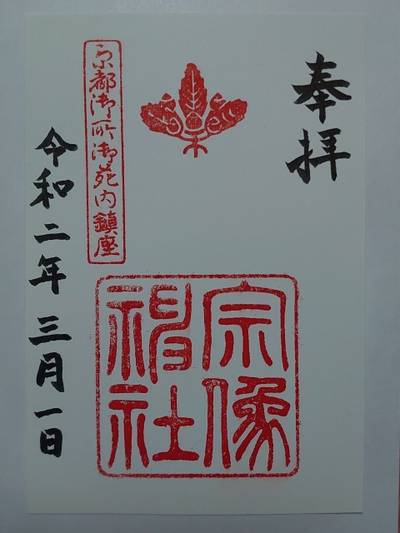 奉拝
宗像
神社
京都御所御苑内鎮座
令和二年三月一日